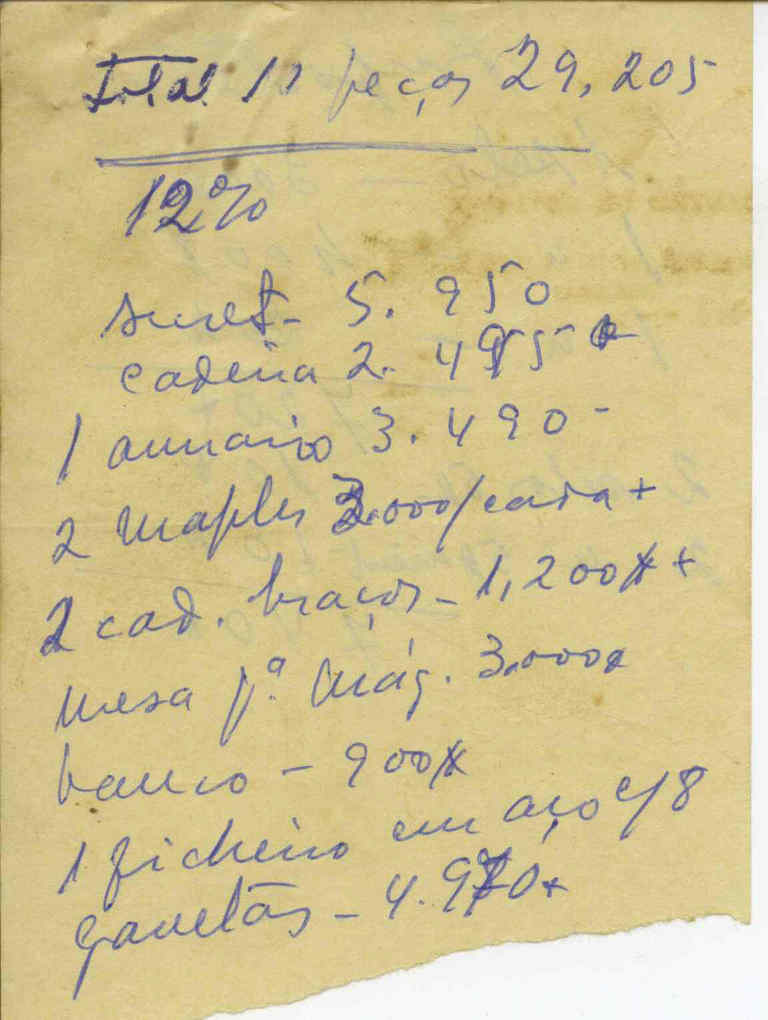 Total 11 peças 29.205
12%
secret- 5.950
cadeira 2.495
1 armario 3.490-
2 maples 3.000/cada +
2 cad. braços - 1,200 +
mesa pª máq. 3.000
banco - 900
1 ficheiro em aço c/8
gavetas - 4.970